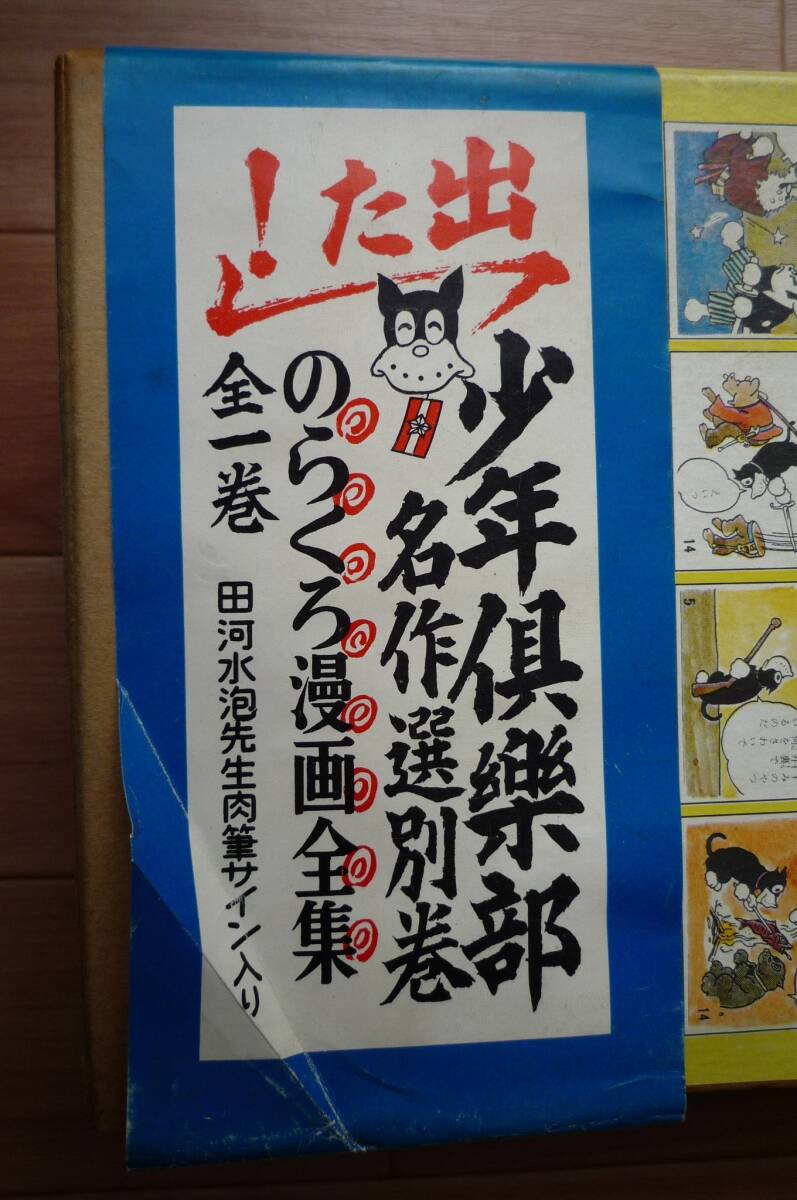 出た!
少年倶樂部
名作選別巻
のらくろ漫画全集
全一巻
田河水泡先生肉筆サイン入り
えいっ
14
5
14